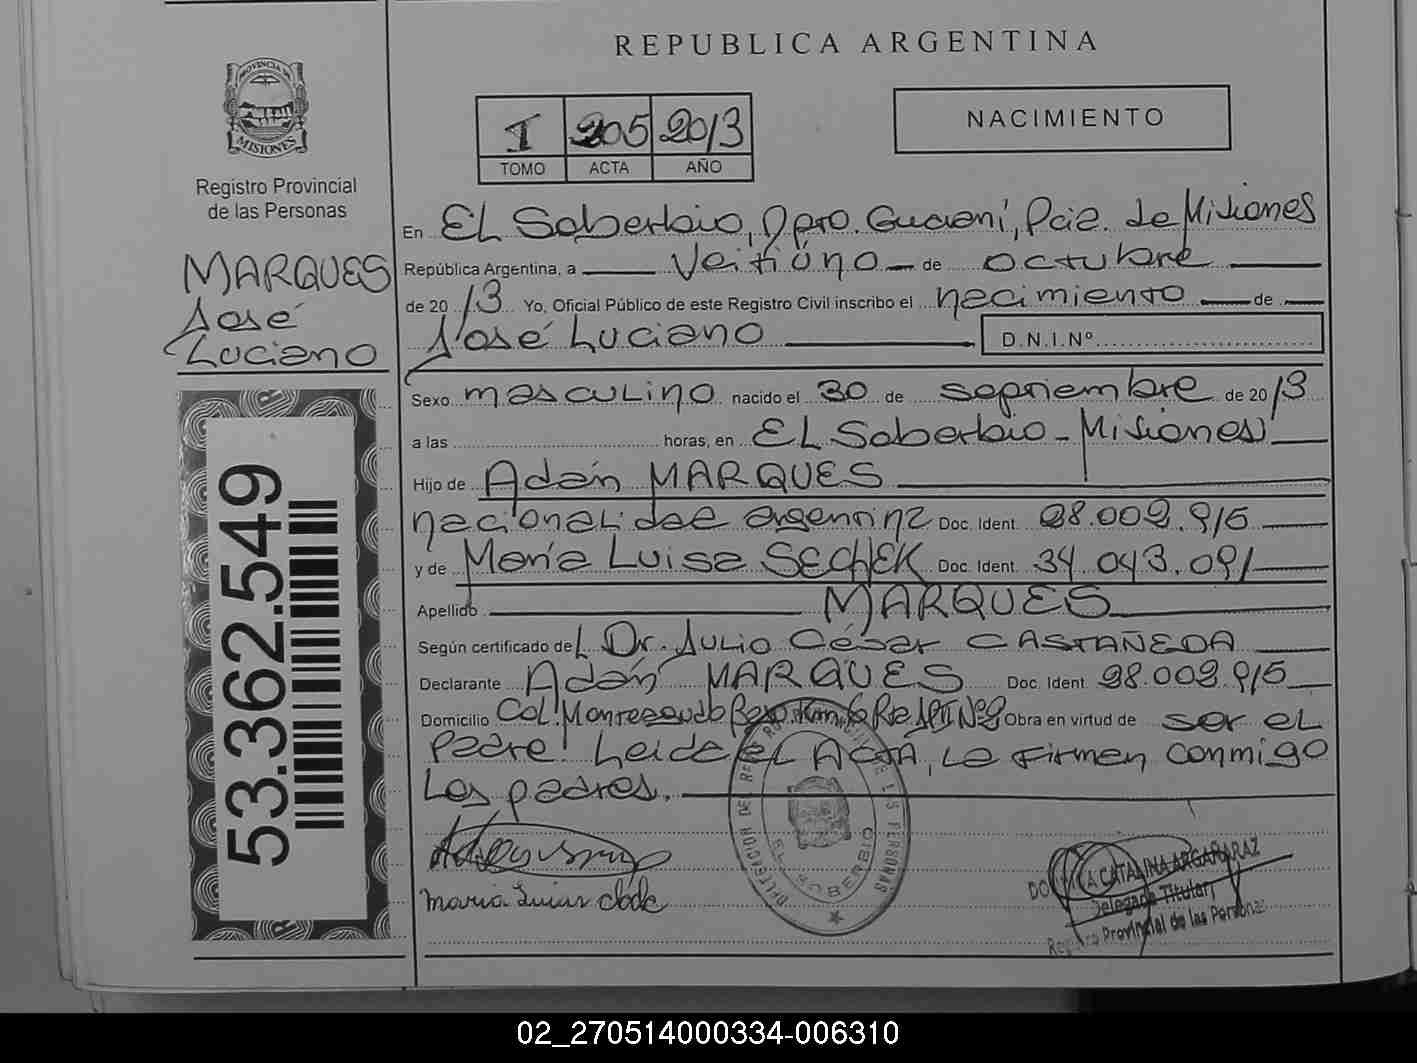 REPUBLICA ARGENTINA
PROVINCIA DE
MISIONES
Registro Provincial
de las Personas
I 205 2013
TOMO ACTA AÑO
NACIMIENTO
MARQUES
José
Luciano
53.362.549
En El Soberbio, Dpto. Guaraní, Pcia. de Misiones
República Argentina, a Veitiúno de octubre
de 2013 Yo, Oficial Público de este Registro Civil inscribo el nacimiento de
José Luciano D.N.I.Nº
Sexo masculino nacido el 30 de septiembre de 2013
a las horas, en El Soberbio - Misiones
Hijo de Adán MARQUES
nacionalidad argentina Doc. Ident. 28.002.915
y de María Luisa SECHEK Doc. Ident. 34.043.091
Apellido MARQUES
Según certificado del Dr. Julio César CASTAÑEDA
Declarante Adán MARQUES Doc. Ident. 28.002.915
Domicilio Col. Monteagudo Obra en virtud de ser el
padre. Leida el Acta, la firman conmigo
los padres.
DELEGACION DEL REGISTRO PROVINCIAL DE LAS PERSONAS
EL SOBERBIO
CATALINA ARGAÑARAZ
Delegada Titular
Registro Provincial de las Personas
02_270514000334-006310